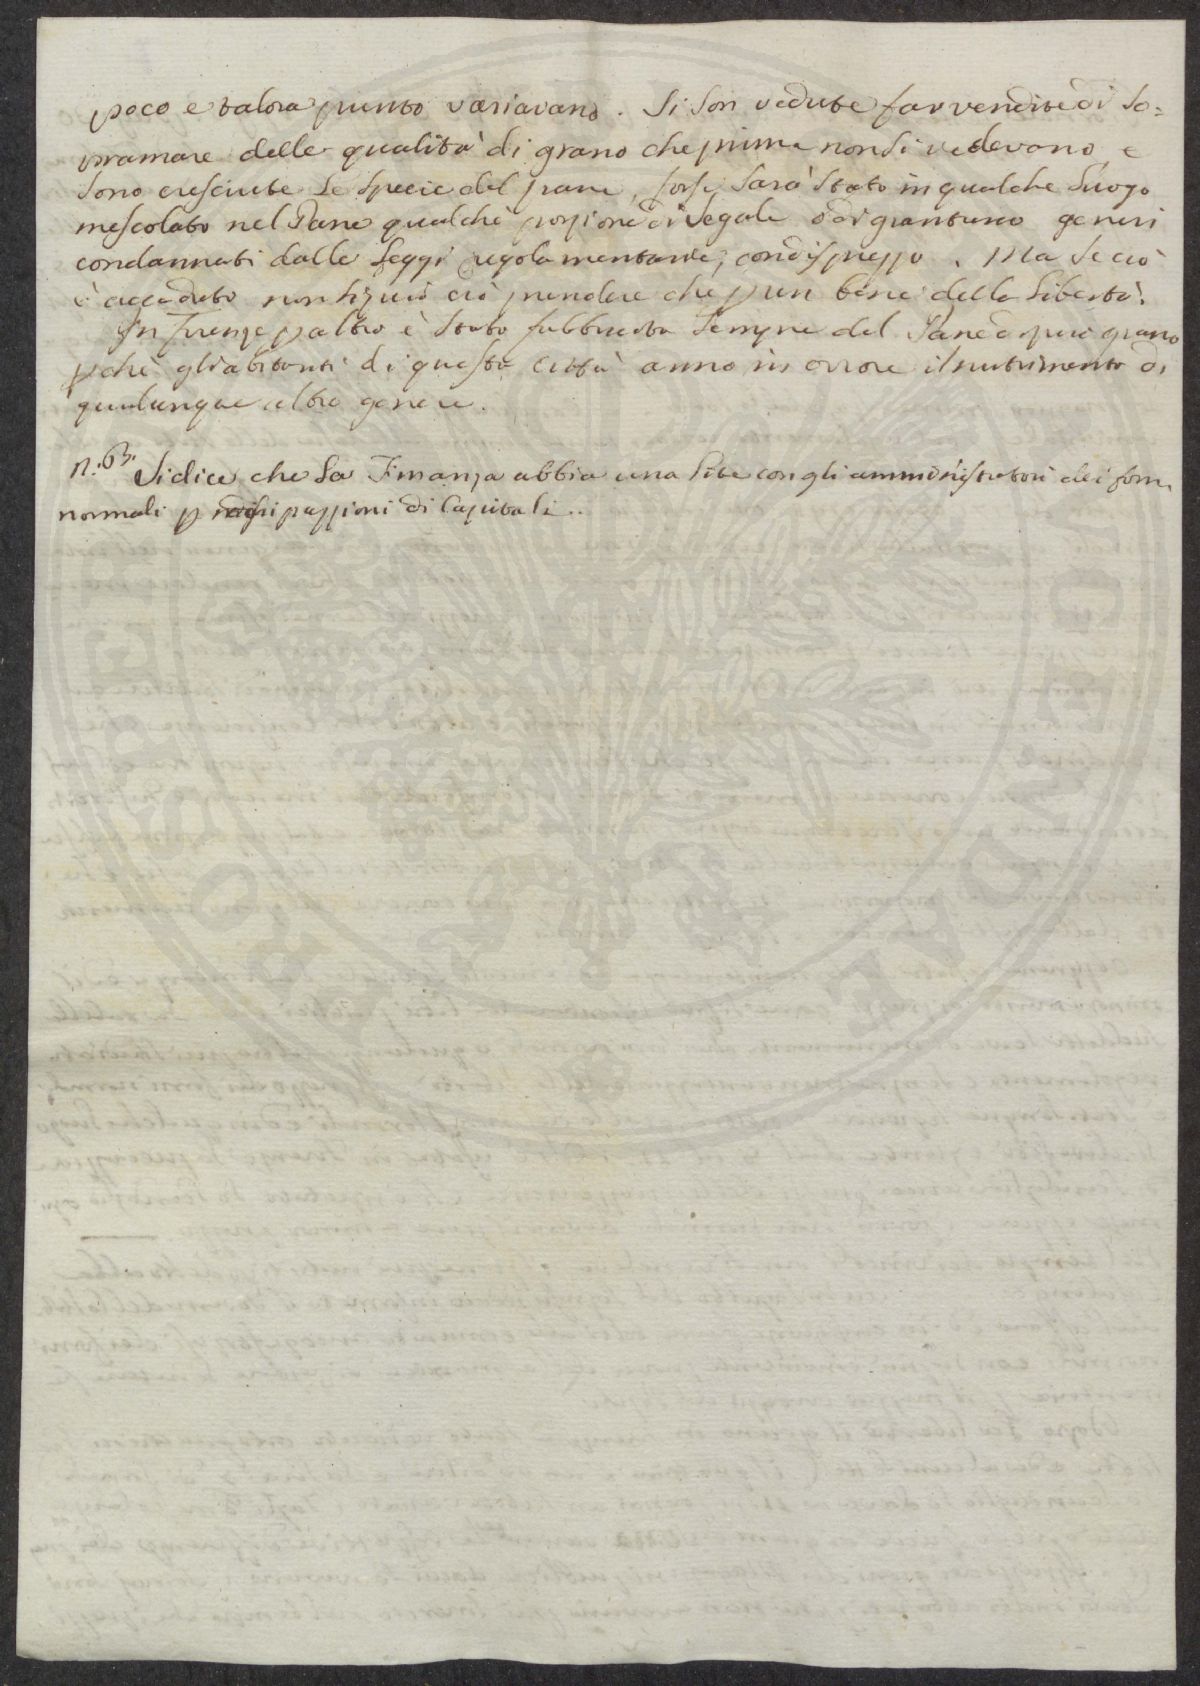 poco e talora punto variavano. Si son vedute far vendite di so=
pramare delle qualità di grano che prima non si vedevano, e
sono cresciute le specie del pane, forse sarà stato in qualche luogo
mescolato nel Pane qualche porzione di segale o di grantuno generi
condannati dalle leggi regolamentarie, con disprezzo. Ma se ciò
è accaduto non si può ciò prendere che p un bene della libertà.
In Firenze p altro è stato fabbricato sempre del Pane di puro grano
pchè gli abitanti di questa Città anno in orrore il nutrimento di
qualunque altro genere.
n.° 63. Si dice che la Finanza abbia una lite con gli amministratori dei forni
normali p pazzioni di Capitali..